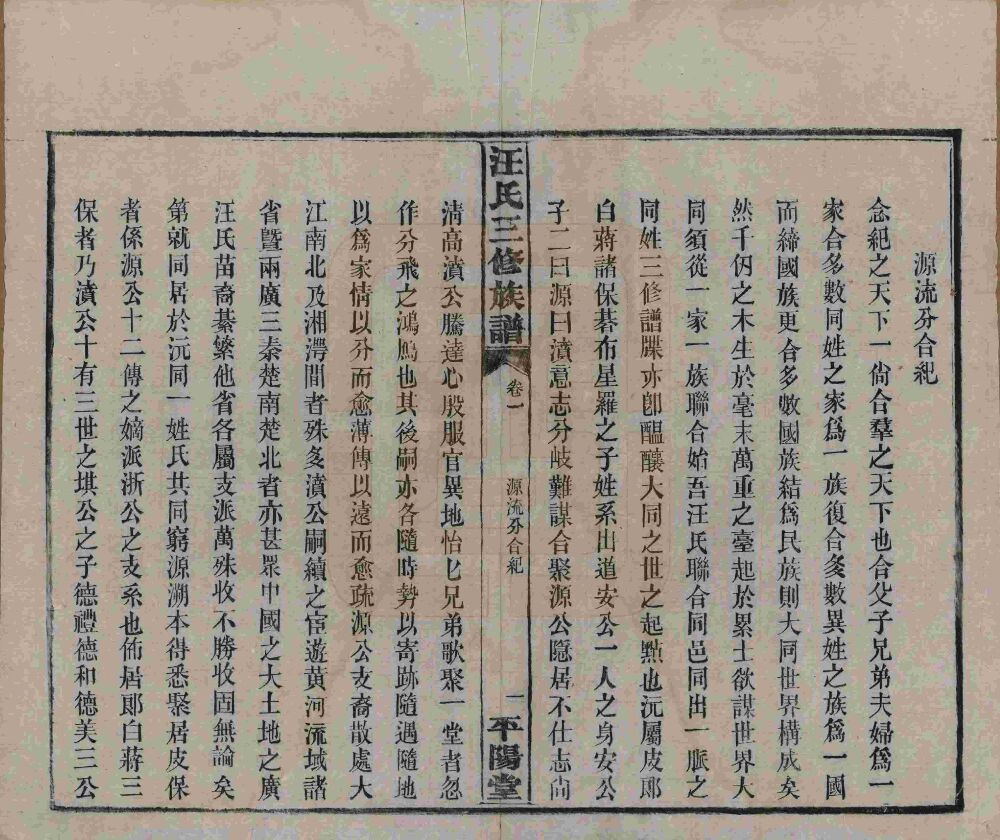 源流分合紀
念紀之天下一尙合羣之天下也合父子兄弟夫婦爲一
家合多數同姓之家爲一族復合多數異姓之族爲一國
而締國族更合多數國族結爲民族則大同世界構成矣
然千仞之木生於毫末萬重之臺起於累土欲謀世界大
同須從一家一族聯合始吾汪氏聯合同邑同出一脈之
同姓三修譜牒亦卽醞釀大同之世之起點也沅屬皮郞
白蔣諸保碁布星羅之子姓系出道安公一人之身安公
子二曰源曰濆意志分歧難謀合聚源公隱居不仕志尙
汪氏三修族譜
卷一
源流分合紀
一
平陽堂
淸高濆公騰達心殷服官異地怡怡兄弟歌聚一堂者忽
作分飛之鴻鴈也其後嗣亦各隨時勢以寄跡隨遇隨地
以爲家情以分而愈薄傳以遠而愈疏源公支裔散處大
江南北及湘澧間者殊多濆公嗣續之宦遊黃河流域諸
省曁兩廣三秦楚南楚北者亦甚眾中國之大土地之廣
汪氏苗裔綦繁他省各屬支派萬殊收不勝收固無論矣
第就同居於沅同一姓氏共同窮源溯本得悉聚居皮保
者係源公十二傳之嫡派浙公之支系也佈居郞白蔣三
保者乃濆公十有三世之堪公之子德禮德和德美三公